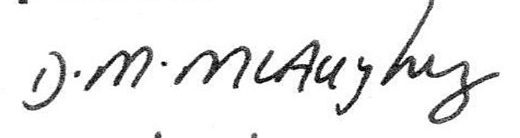 D. M. McAughey